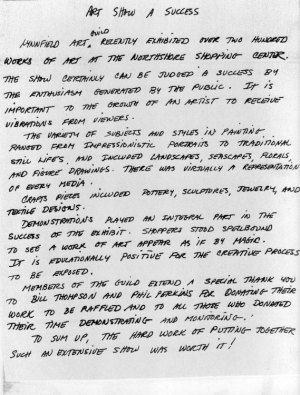 ART SHOW A SUCCESS
GUILD
LYNNFIELD ART, RECENTLY EXHIBITED OVER TWO HUNDRED
WORKS OF ART AT THE NORTHSHORE SHOPPING CENTER.
THE SHOW CERTAINLY CAN BE JUDGED A SUCCESS BY
THE ENTHUSIASM GENERATED BY THE PUBLIC. IT IS
IMPORTANT TO THE GROWTH OF AN ARTIST TO RECEIVE
VIBRATIONS FROM VIEWERS.
THE VARIETY OF SUBJECTS AND STYLES IN PAINTING
RANGED FROM IMPRESSIONISTIC PORTRAITS TO TRADITIONAL
STILL LIFES, AND INCLUDED LANDSCAPES, SEASCAPES, FLORALS,
AND FIGURE DRAWINGS. THERE WAS VIRTUALLY A REPRESENTATION
OF EVERY MEDIA.
CRAFTS PIECES INCLUDED POTTERY, SCULPTURES, JEWELRY, AND
TEXTILE DESIGNS.
DEMONSTRATIONS PLAYED AN INTEGRAL PART IN THE
SUCCESS OF THE EXHIBIT. SHOPPERS STOOD SPELLBOUND
TO SEE A WORK OF ART APPEAR AS IF BY MAGIC.
IT IS EDUCATIONALLY POSITIVE FOR THE CREATIVE PROCESS
TO BE EXPOSED.
MEMBERS OF THE GUILD EXTEND A SPECIAL THANK YOU
TO BILL THOMPSON AND PHIL PERKINS FOR DONATING THEIR
WORK TO BE RAFFLED AND TO ALL THOSE WHO DONATED
THEIR TIME DEMONSTRATING AND MONITORING.
TO SUM UP, THE HARD WORK OF PUTTING TOGETHER
SUCH AN EXTENSIVE SHOW WAS WORTH IT!